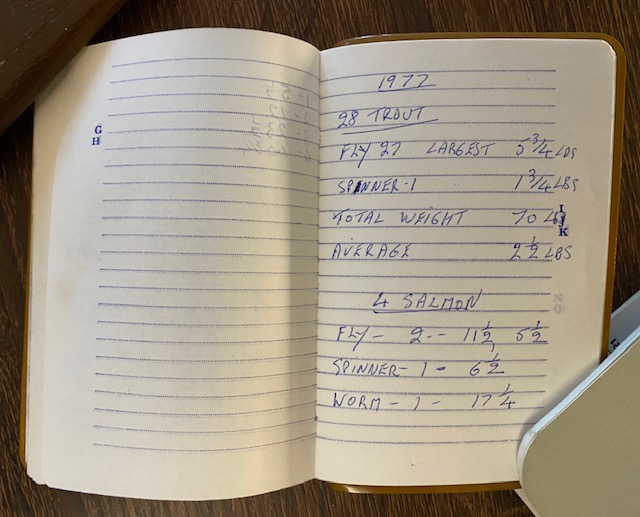 G
H
1977
28 TROUT
FLY 27 LARGEST 5 3/4 LBS
SPINNER-1 1 3/4 LBS
TOTAL WEIGHT 70 LB
AVERAGE 2 1/2 LBS
I
J
K
4 SALMON
FLY - 2 -- 11 1/2, 5 1/2
SPINNER - 1 - 6 1/2
WORM - 1 - 17 1/4